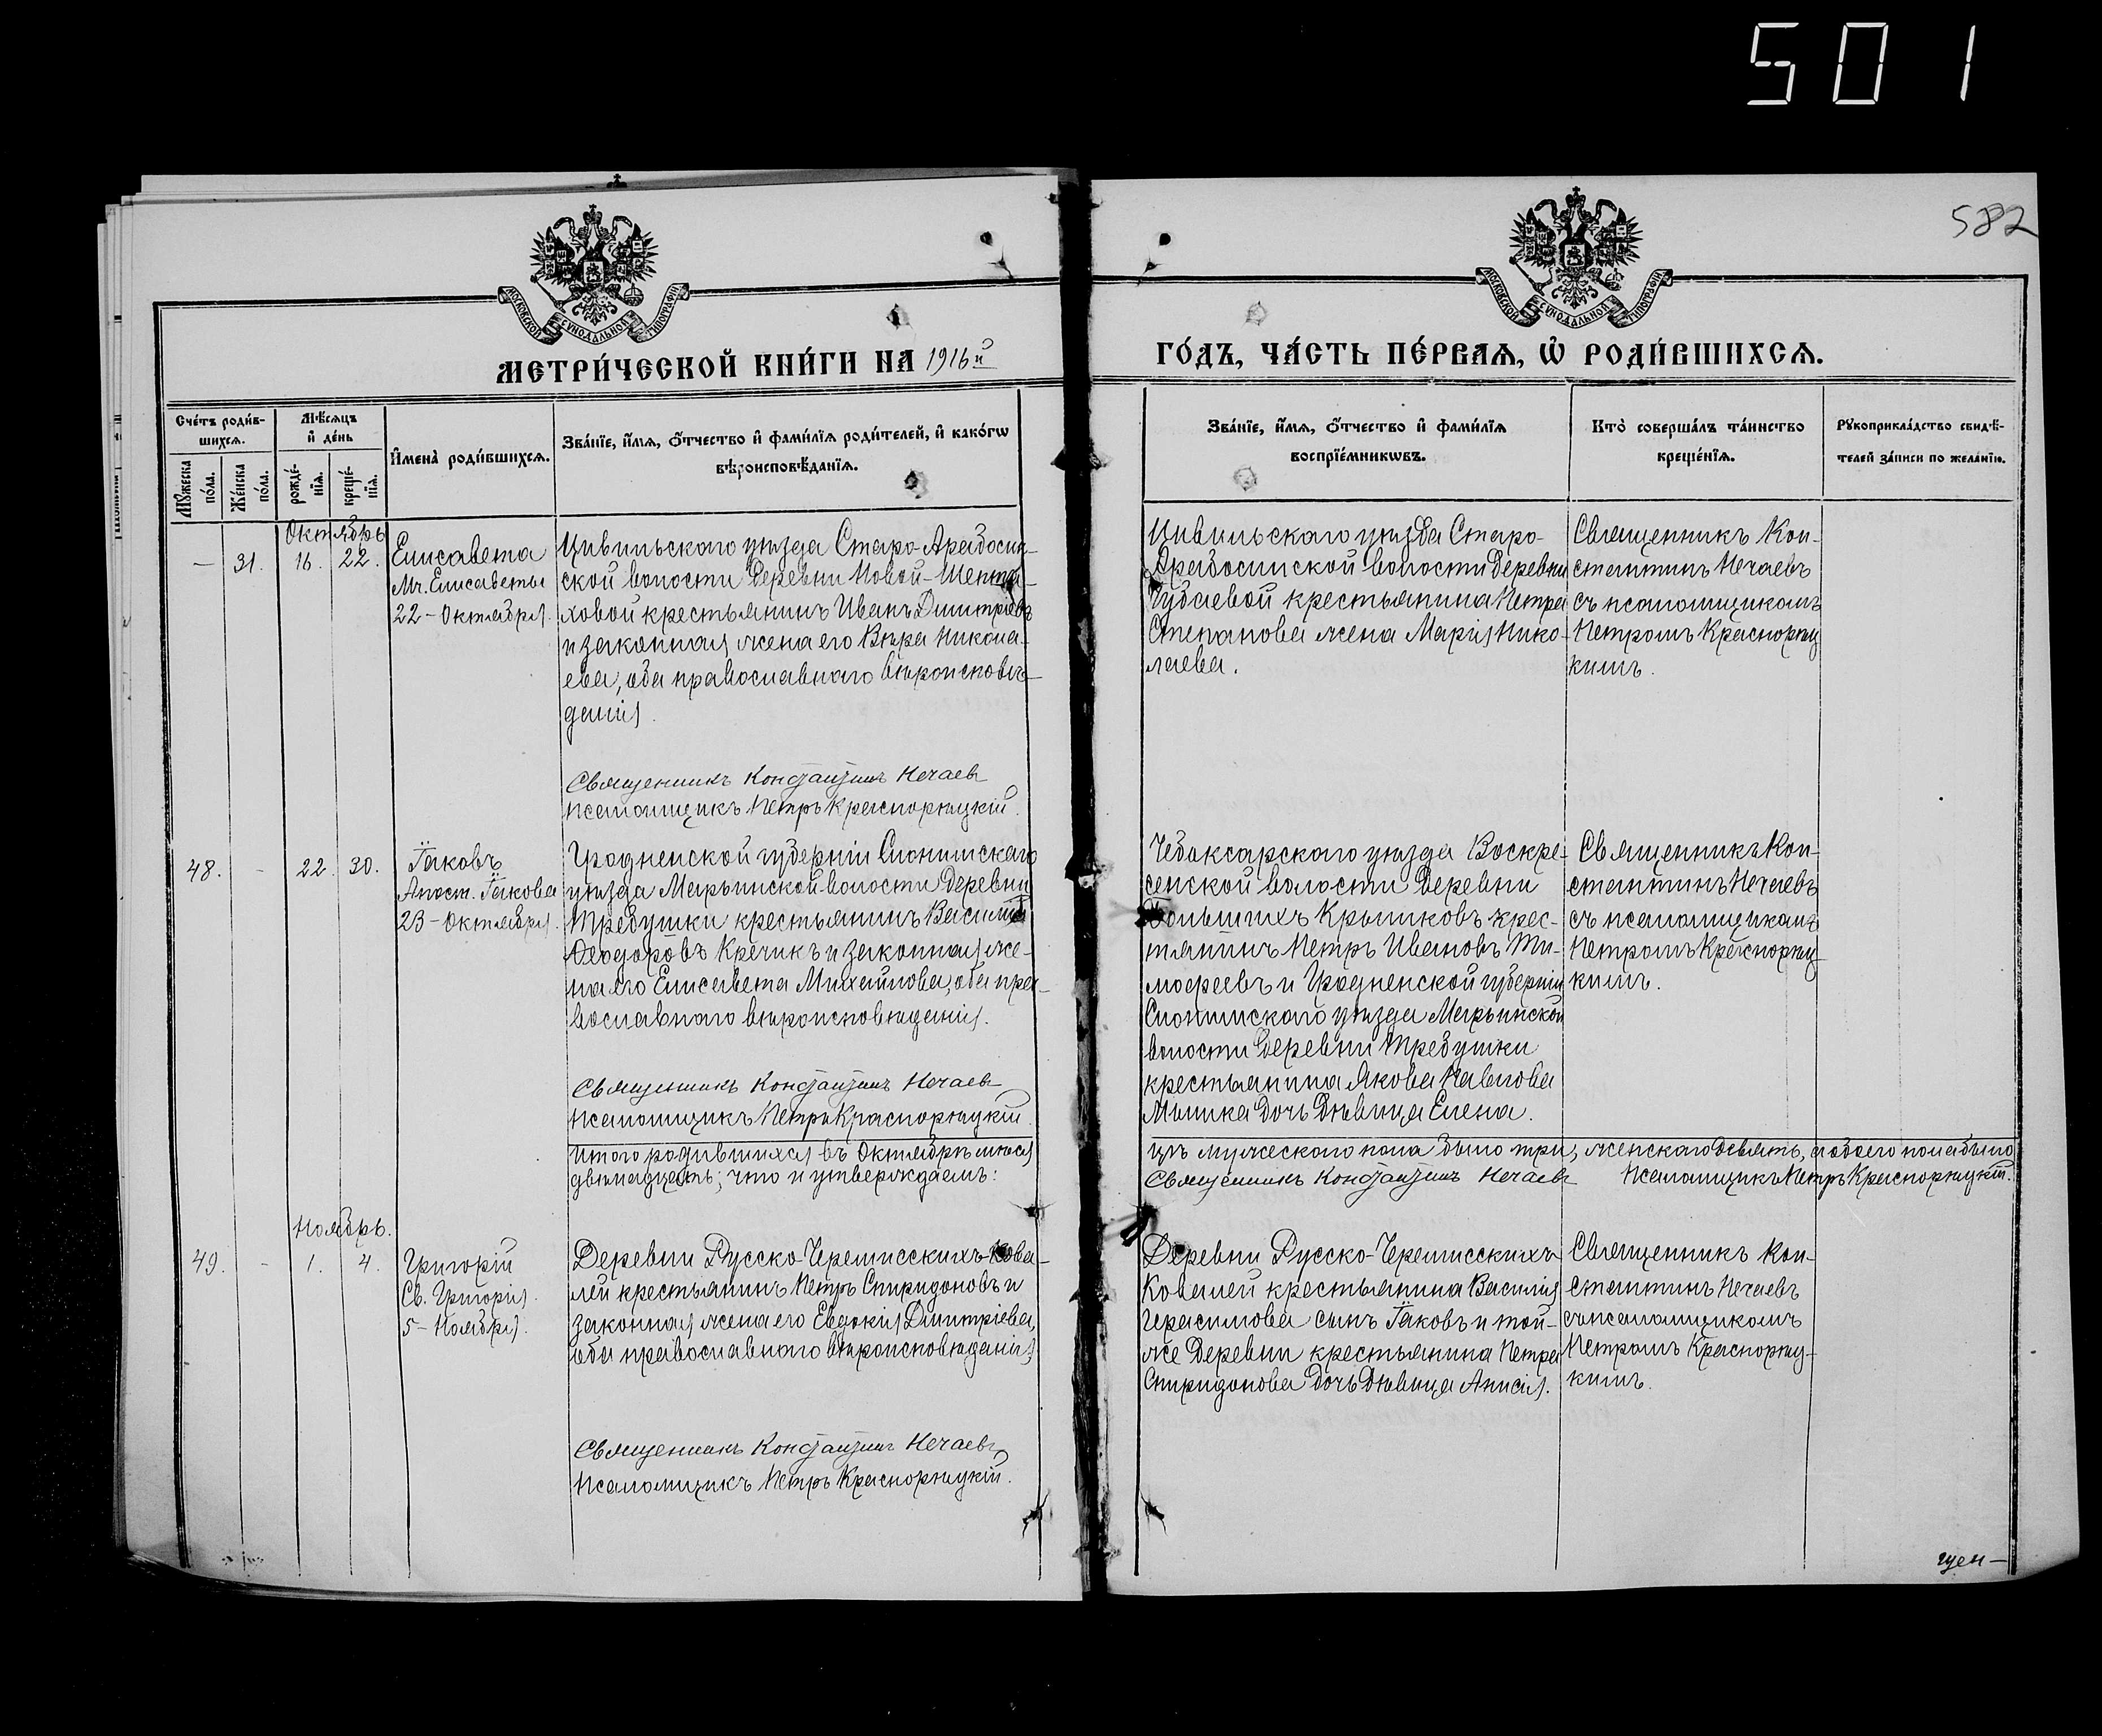 501
582
МОСКОВСКОЙ СУНОДАЛЬНОЙ ТИПОГРАФІИ
МОСКОВСКОЙ СУНОДАЛЬНОЙ ТИПОГРАФІИ
МЕТРИ́ЧЕСКОЙ КНИ́ГИ НА 1916й
ГО́ДЪ, ЧА́СТЬ ПЕ́РВАѦ, Ѡ҆ РОДИ́ВШИХСѦ.
Сче́тъ роди́в-
шихсѧ.
Мꙋ́жеска по́ла.
Же́нска по́ла.
Мѣ́сѧцъ
и҆ де́нь
рожде́-
нїѧ.
креще́-
нїѧ.
И҆мена̀ роди́вшихсѧ.
Зва́нїе, и҆́мѧ, ѻ҆́тчество и҆ фами́лїѧ роди́телей, и҆ како́гѡ
вѣроисповѣ́данїѧ.
Зва́нїе, и҆́мѧ, ѻ҆́тчество и҆ фами́лїѧ
воспрїе́мникѡвъ.
Кто̀ соверша́лъ та́инство
креще́нїѧ.
Рꙋкоприкла́дство свидѣ́-
телей за́писи по жела́нїю.
Октябрь
— 31. 16. 22.
Елисавета
Мч. Елисаветы
22 – Октября.
Цивильскаго уѣзда Старо-Арабосин-
ской волости деревни Новой-Шепта-
ховой крестьянинъ Иванъ Димитріевъ
и законная жена его Вѣра Никола-
ева, оба православнаго вѣроисповѣ-
данія.
Священникъ Константинъ Нечаевъ
Псаломщикъ Петръ Краснорѣцкій.
Цивильскаго уѣзда Старо-
Арабосинской волости деревни
Чубаевой крестьянина Петра
Степанова жена Марія Нико-
лаева.
Священникъ Кон-
стантинъ Нечаевъ
съ псаломщикомъ
Петромъ Краснорѣц
кимъ.
48. - 22. 30.
Іаковъ
Апост. Іакова
23 – Октября.
Гродненской губерніи Слонимскаго
уѣзда Марьинской волости деревни
Требушки крестьянинъ Василій
Ѳеодоровъ Кречикъ и законная же-
на его Елисавета Михаилова, оба пра-
вославнаго вѣроисповѣданія.
Священникъ Константинъ Нечаевъ
Псаломщикъ Петръ Краснорѣцкій.
Чебоксарскаго уѣзда Воскре-
сенской волости деревни
Большихъ Крышковъ крес-
тянинъ Петръ Ивановъ Ти-
мофеевъ и Гродненской губерніи
Слонимскаго уѣзда Марьинской
волости деревни Требушки
крестьянина Якова Павлова
Мышка дочь дѣвица Елена.
Священникъ Кон-
стантинъ Нечаевъ
съ псаломщикамъ
Петромъ Краснорѣц-
кимъ.
Итого родившихся въ Октябрѣ мѣся
цѣ мужескаго пола было три, женскаго девять, а обоего пола было
двѣнадцать; что и утверждаемъ:
Священникъ Константинъ Нечаевъ Псаломщикъ Петръ Краснорѣцкій.
Ноябрь.
49. - 1. 4.
Григорій
Св. Григорія.
5 – Ноября.
Деревни Русско-Черемисскихъ-Кова-
лей крестьянинъ Петръ Спиридоновъ и
законная жена его Евдокія Димитріева,
оба православнаго вѣроисповѣданія.
Священникъ Константинъ Нечаевъ
Псаломщикъ Петръ Краснорѣцкій.
Деревни Русско-Черемисскихъ
Ковалей крестьянина Василія
Герасимова сынъ Іаковъ и той-
же деревни крестьянина Петра
Спиридонова дочь дѣвица Анисія.
Священникъ Кон-
стантинъ Нечаевъ
съ псаломщикомъ
Петромъ Краснорѣц-
кимъ.
щен–